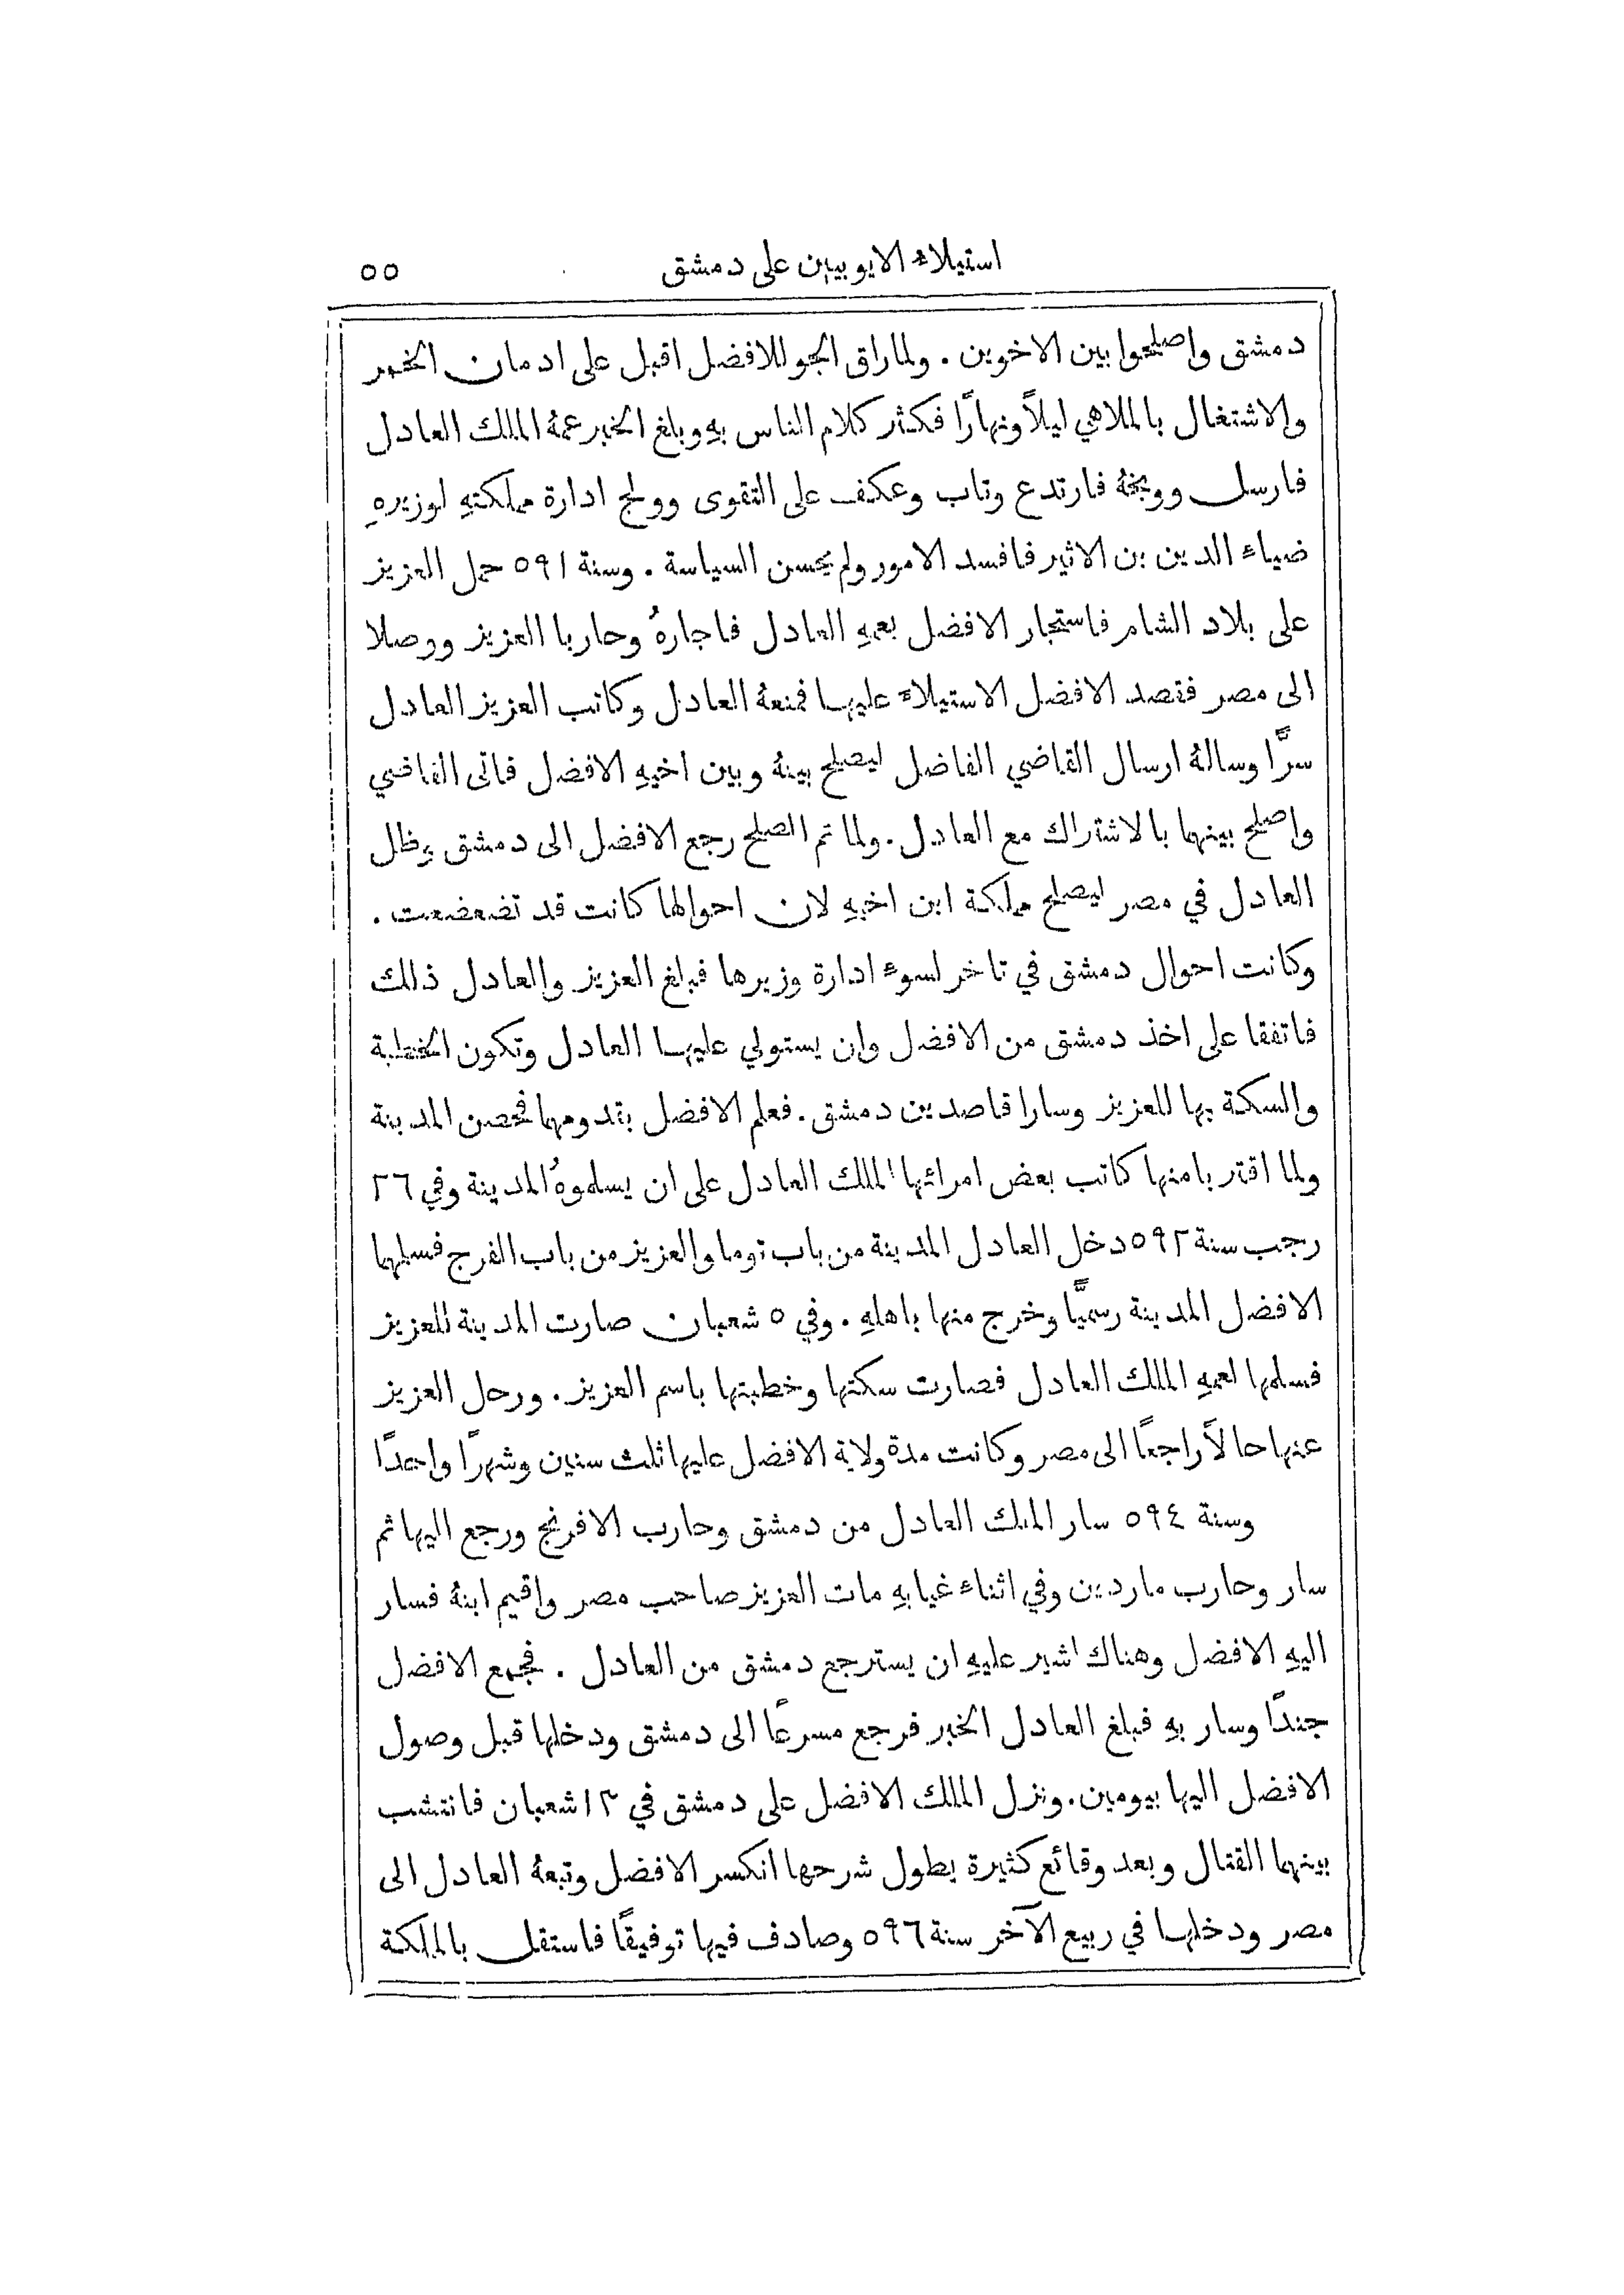 استيلاء الايوبيين على دمشق ٥٥
دمشق واصلحوا بين الاخوين . ولما راق الجو للافضل اقبل على ادمان الخمر
والاشتغال بالملاهي ليلاً ونهارًا فكثر كلام الناس بهِ وبلغ الخبر عمهُ الملك العادل
فارسل ووبخهُ فارتدع وتاب وعكف على التقوى وولج ادارة مملكتهِ لوزيرهِ
ضياء الدين بن الاثير فافسد الامور ولم يحسن السياسة . وسنة ٥٩١ حمل العزيز
على بلاد الشام فاستجار الافضل بعمهِ العادل فاجارهُ وحاربا العزيز ووصلا
الى مصر فقصد الافضل الاستيلاء عليها فمنعهُ العادل وكاتب العزيز العادل
سرًّا وسالهُ ارسال القاضي الفاضل ليصلح بينهُ وبين اخيهِ الافضل فاتى القاضي
واصلح بينهما بالاشتراك مع العادل . ولما تم الصلح رجع الافضل الى دمشق وظل
العادل في مصر ليصلح مملكة ابن اخيهِ لان احوالها كانت قد تضعضعت .
وكانت احوال دمشق في تاخر لسوء ادارة وزيرها فبلغ العزيز والعادل ذلك
فاتفقا على اخذ دمشق من الافضل وان يستولي عليها العادل وتكون الخطبة
والسكة بها للعزيز وسارا قاصدين دمشق . فعلم الافضل بقدومهما فحصن المدينة
ولما اقتربا منها كاتب بعض امرائها الملك العادل على ان يسلموهُ المدينة وفي ٢٦
رجب سنة ٥٩٢ دخل العادل المدينة من باب توما والعزيز من باب الفرج فسلمها
الافضل المدينة رسميًّا وخرج منها باهلهِ . وفي ٥ شعبان صارت المدينة للعزيز
فسلمها لعمهِ الملك العادل فصارت سكتها وخطبتها باسم العزيز . ورحل العزيز
عنها حالاً راجعًا الى مصر وكانت مدة ولاية الافضل عليها ثلث سنين وشهرًا واحدًا
وسنة ٥٩٤ سار الملك العادل من دمشق وحارب الافرنج ورجع اليها ثم
سار وحارب ماردين وفي اثناء غيابهِ مات العزيز صاحب مصر واقيم ابنهُ فسار
اليهِ الافضل وهناك اشير عليهِ ان يسترجع دمشق من العادل . فجمع الافضل
جندًا وسار بهِ فبلغ العادل الخبر فرجع مسرعًا الى دمشق ودخلها قبل وصول
الافضل اليها بيومين . ونزل الملك الافضل على دمشق في ١٣ شعبان فانتشب
بينهما القتال وبعد وقائع كثيرة يطول شرحها انكسر الافضل وتبعهُ العادل الى
مصر ودخلها في ربيع الآخر سنة ٥٩٦ وصادف فيها توفيقًا فاستقل بالملكة